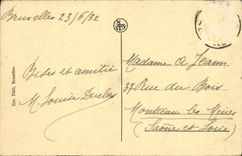 Bruxelles 23/6/32
Bises et amitié
M. Louise Duclos
Madame A Jeanin
37 Rue du Bois
Montceau les Mines
(Saône et Loire)
Ern. Thill, Bruxelles.